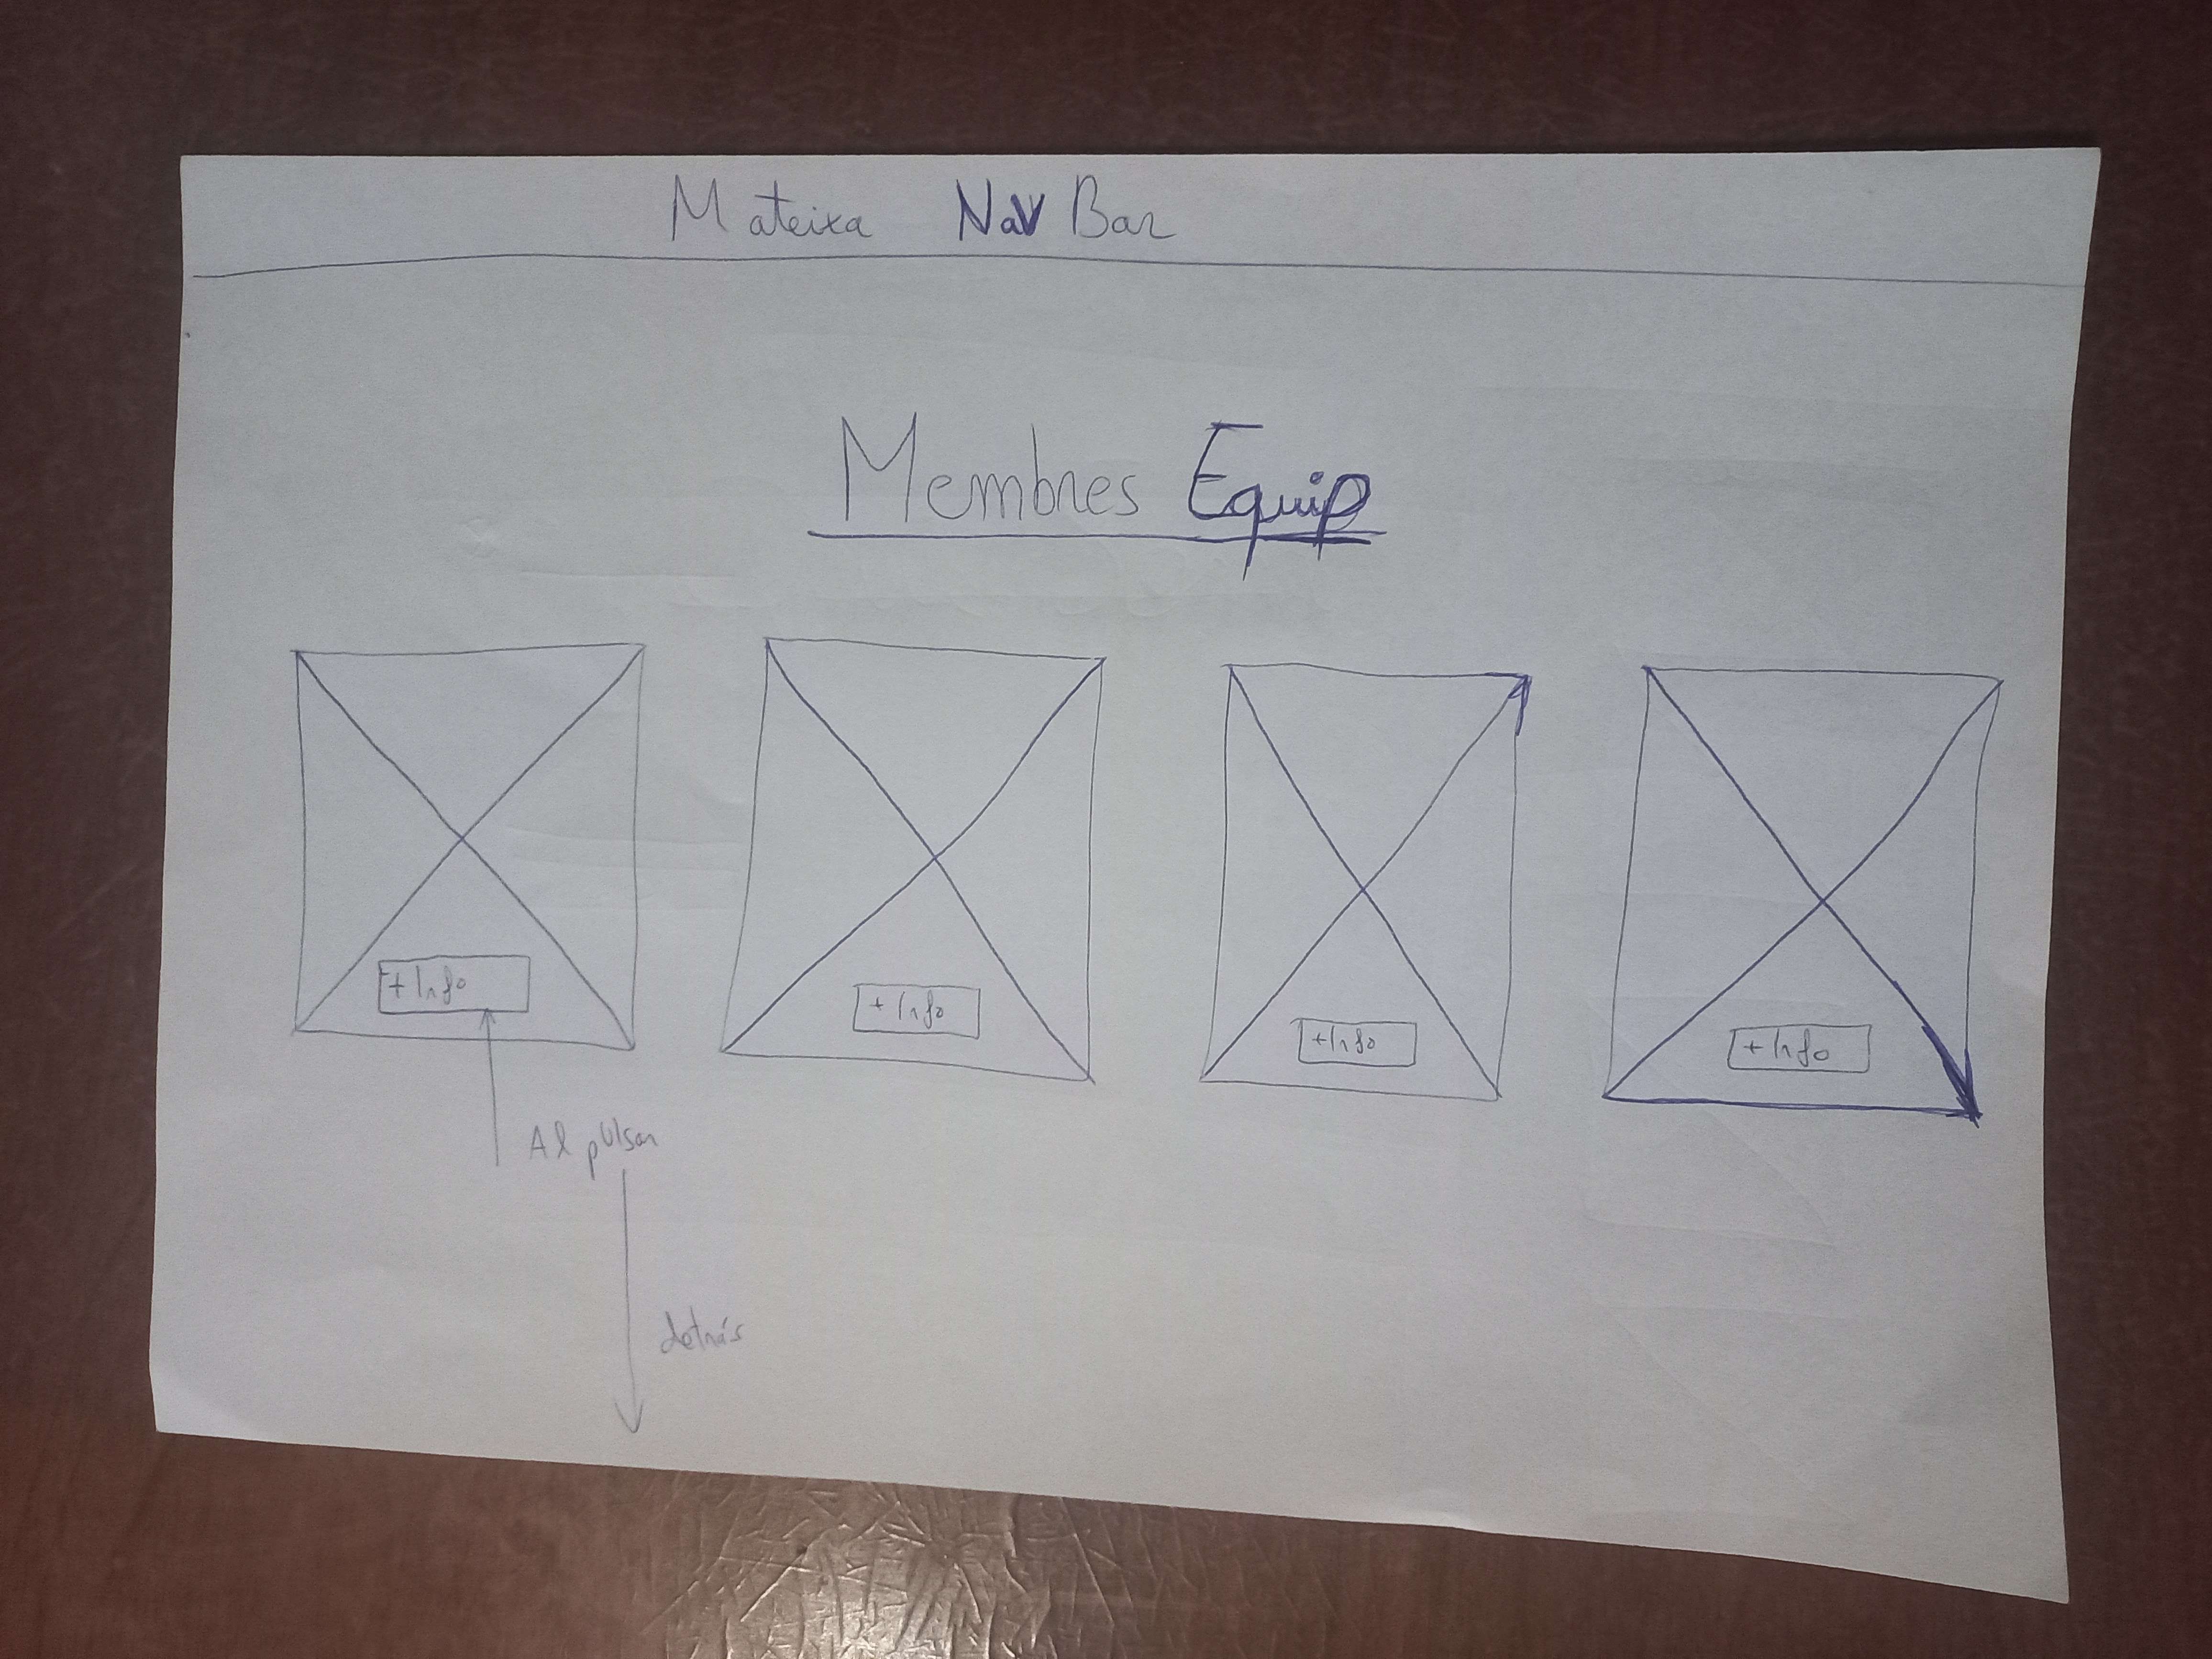 Mateixa NaV Bar
Membres Equip
+ Info
+ Info
+ Info
+ Info
Al pulsar
detrás